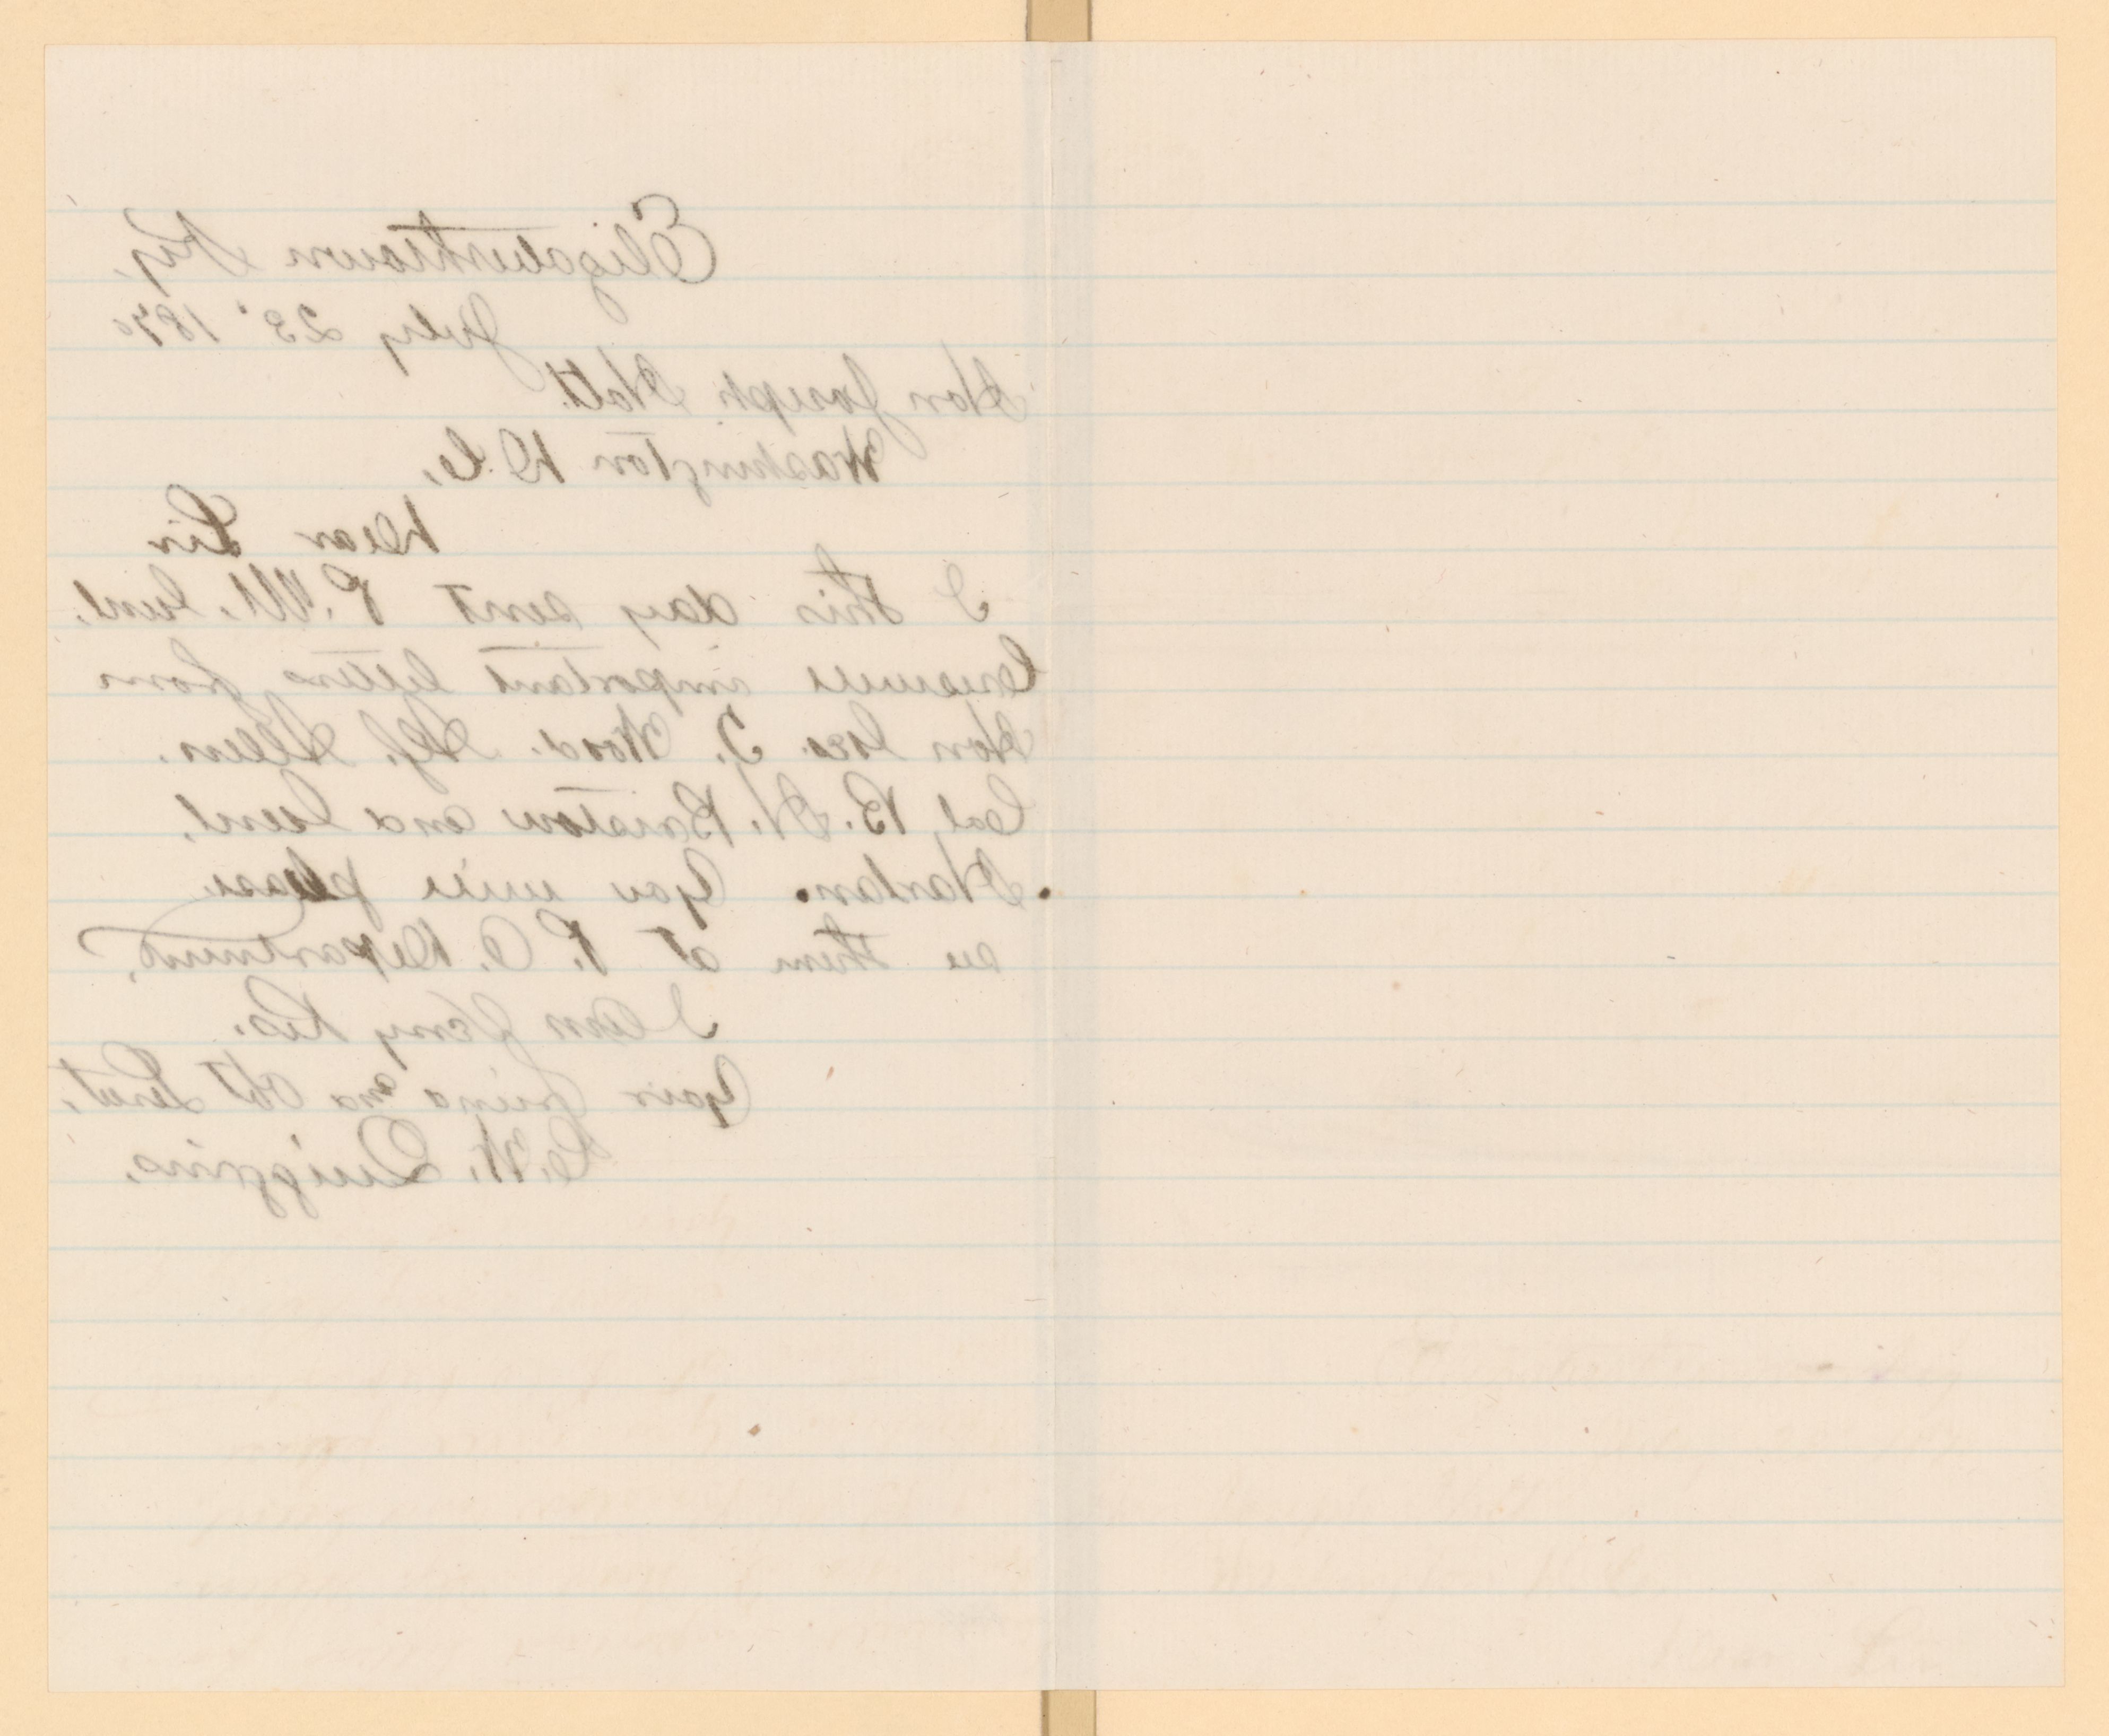 Elizabethtown Ky,
July 23" 1870
Hon Joseph Holt
Washington D.C,
Dear Sir
I this day sent P.M. Genl.
Creswell important letters from
Hon Geo. T. Wood. Alf. Allen.
Col, B. H. Bristow and Genl.
Harlan. You will please
see them at P. O. Department.
I am Very Res.
Your friend and Obt Servt.
C.W. Quiggins.